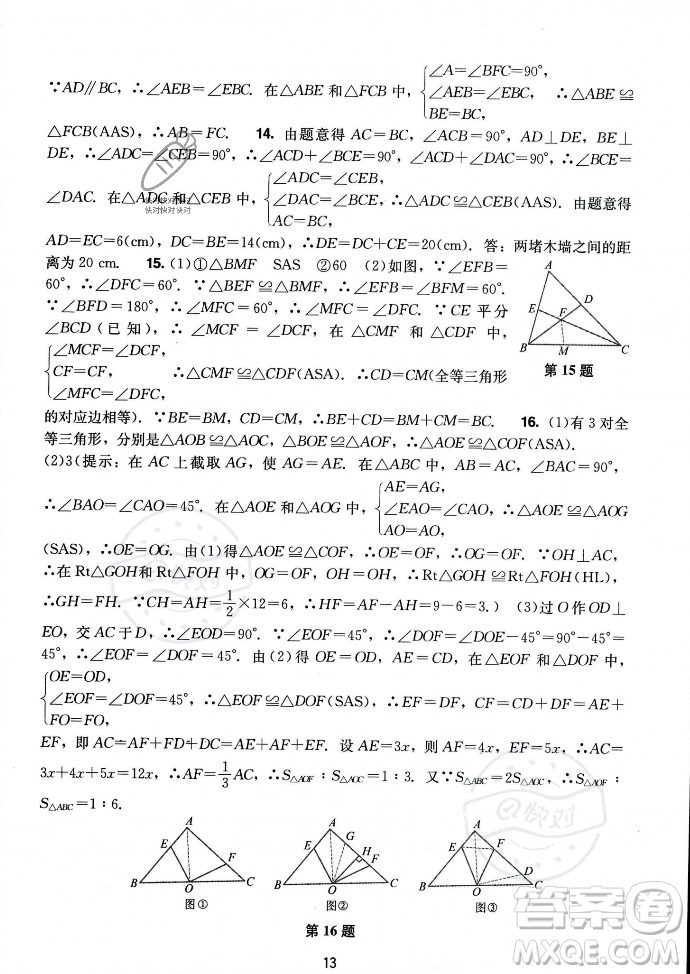 ∵AD∥BC,∴∠AEB=∠EBC. 在△ABE 和△FCB 中,{∠A=∠BFC=90°, ∠AEB=∠EBC, BE=BC, ∴△ABE≌
△FCB(AAS),∴AB=FC. 14. 由题意得 AC=BC,∠ACB=90°,AD⊥DE,BE⊥
DE,∴∠ADC=∠CEB=90°,∴∠ACD+∠BCE=90°,∠ACD+∠DAC=90°,∴∠BCE=
∠DAC. 在△ADC 和△CEB 中,{∠ADC=∠CEB, ∠DAC=∠BCE, AC=BC, ∴△ADC≌△CEB(AAS). 由题意得
快对快对快对
快对快对快对
AD=EC=6(cm),DC=BE=14(cm),∴DE=DC+CE=20(cm). 答:两堵木墙之间的距
离为 20 cm. 15. (1)①△BMF SAS ②60 (2)如图,∵∠EFB=
60°,∴∠DFC=60°. ∵△BEF≌△BMF,∴∠EFB=∠BFM=60°.
∵∠BFD=180°,∴∠MFC=60°,∴∠MFC=∠DFC. ∵CE 平分
∠BCD(已知),∴∠MCF=∠DCF. 在△MCF 和△DCF 中,
{∠MCF=∠DCF, CF=CF, ∠MFC=∠DFC, ∴△MCF≌△DCF(ASA). ∴CM=CD(全等三角形
的对应边相等). ∵BE=BM,CD=CM,∴BE+CD=BM+CM=BC. 16. (1)有 3 对全
等三角形,分别是△AOB≌△AOC,△BOE≌△AOF,△AOE≌△COF(ASA).
(2)3(提示:在 AC 上截取 AG,使 AG=AE. ∵△AOB≌△AOC,∠BAC=90°,
∴∠BAO=∠CAO=45°. 在△AOE 和△AOG 中,{AE=AG, ∠EAO=∠CAO, AO=AO ∴△AOE≌△AOG
(SAS),∴OE=OG. 由(1)得△AOE≌△COF,∴OE=OF,∴OG=OF. ∵OH⊥AC,
∴在 Rt△GOH和 Rt△FOH 中,OG=OF,OH=OH,∴Rt△GOH≌Rt△FOH(HL),
∴GH=FH. ∵CH=AH=1/2×12=6,∴HF=AF-AH=9-6=3.) (3)过 O 作 OD⊥
EO,交 AC 于 D,∴∠EOD=90°. ∵∠EOF=45°,∴∠DOF=∠EOD-∠EOF=90°-45°=
45°. ∴∠EOF=∠DOF=45°. 由(2)得 OE=OD,AE=CD,在△EOF 和△DOF 中,
{OE=OD, ∠EOF=∠DOF=45°, FO=FO, ∴△EOF≌△DOF(SAS),∴EF=DF,∴CF=CD+DF=AE+
EF,即 AC=AF+FD+DC=AF+AE+EF. 设 AE=3x,则 AF=4x,EF=5x,∴AC=
3x+4x+5x=12x. ∴AF=1/3AC,∴S△AOF∶S△AOC=1∶3. 又∵S△ABC=2S△AOC,∴S△AOF∶
S△ABC=1∶6.
A
E
D
F
B
M
C
第 15 题
A
E
F
B
O
C
图①
A
G
E
H
F
B
O
C
图②
A
E
F
D
B
O
C
图③
第 16 题
13
快对
快对
答案圈
MXQE.COM